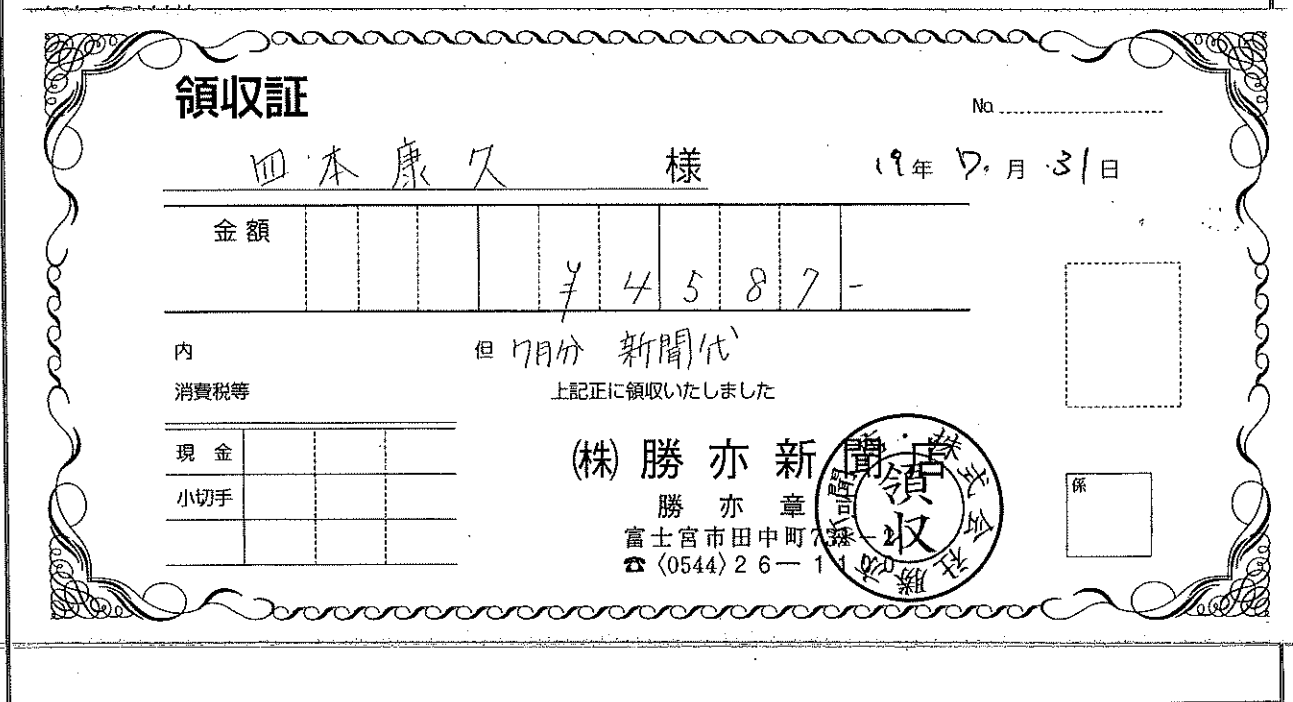 領収証
No.
四本康久 様
19年 7月 31日
金額
¥4587-
内
但 7月分 新聞代
消費税等
上記正に領収いたしました
現金
小切手
㈱ 勝亦新聞店
勝亦章
富士宮市田中町
☎〈0544〉26―11
株式会社勝亦新聞店
領収
係